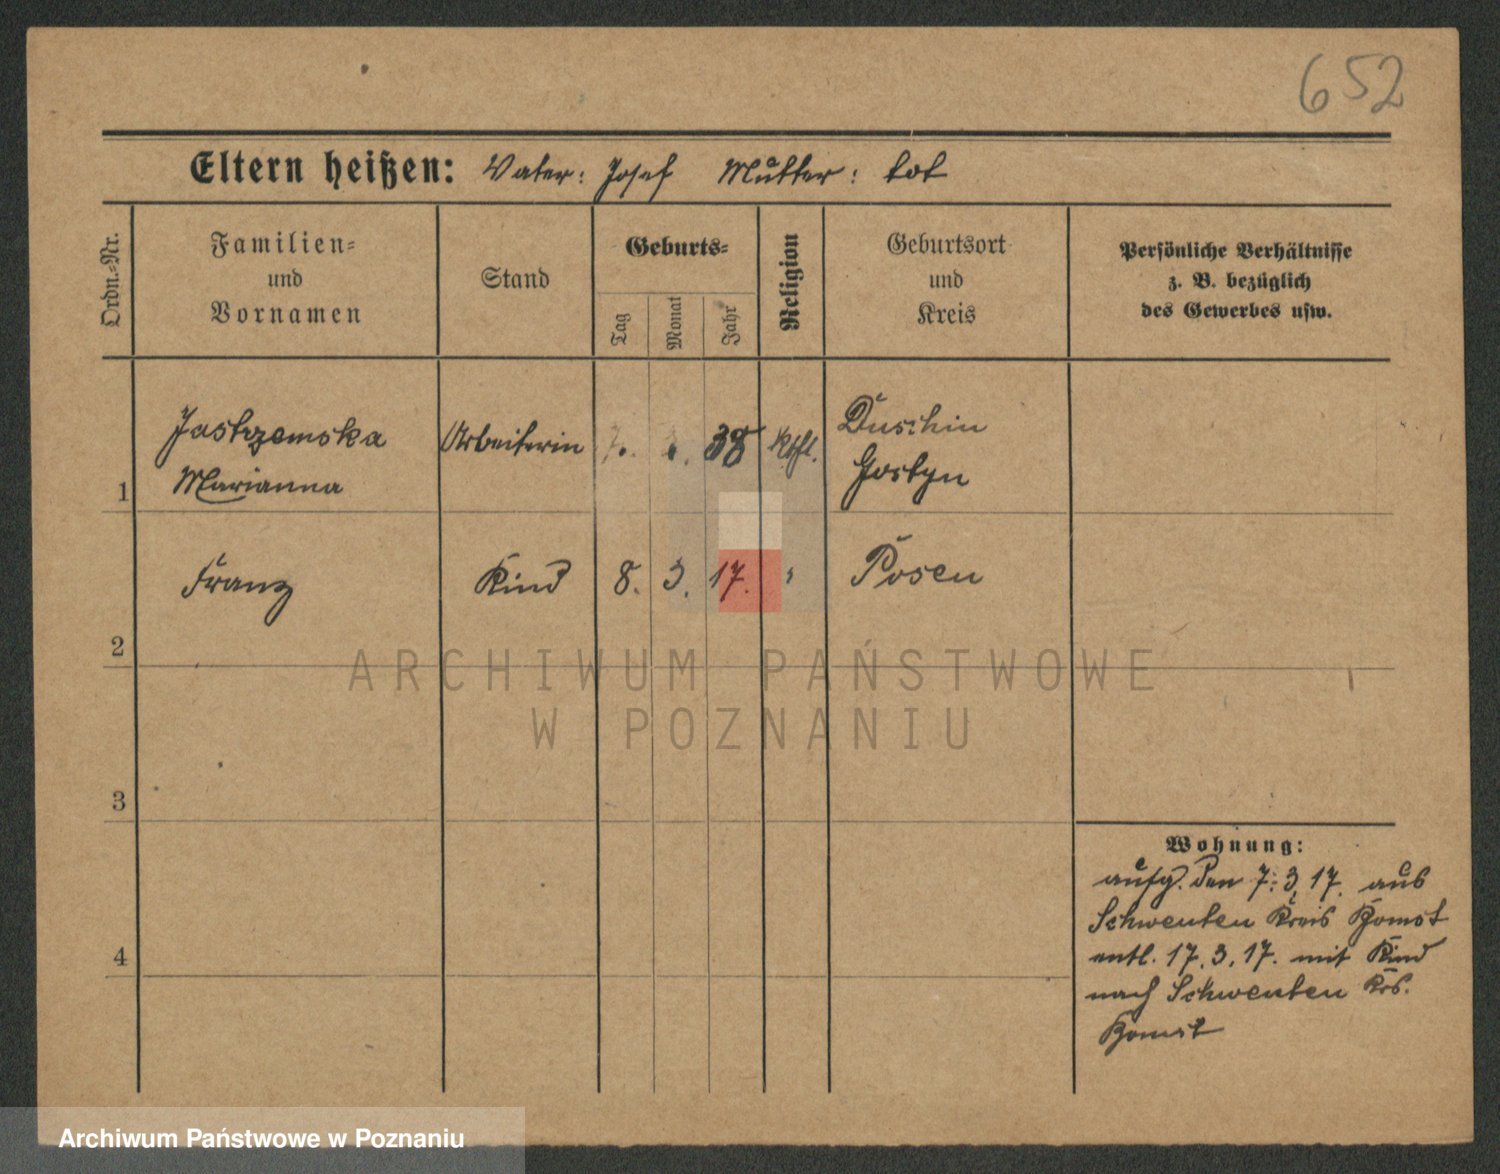 652
Eltern heißen: Vater: Josef Mutter: tot
Ordn.=Nr.
Familien=
und
Vornamen
Stand
Geburts=
Tag
Monat
Jahr
Religion
Geburtsort
und
Kreis
Persönliche Verhältnisse
z. B. bezüglich
des Gewerbes usw.
1
Jastrzemska
Marianna
Arbeiterin
38
Kthl.
Duschin
Gostyn
2
Franz
Kind
8. 3. 17.
"
Posen
3
4
Wohnung:
aufg. den 7. 3. 17. aus
Schwenten Kreis Bomst
entl. 17. 3. 17. mit Kind
nach Schwenten Krs.
Bomst
ARCHIWUM PAŃSTWOWE
W POZNANIU
Archiwum Państwowe w Poznaniu